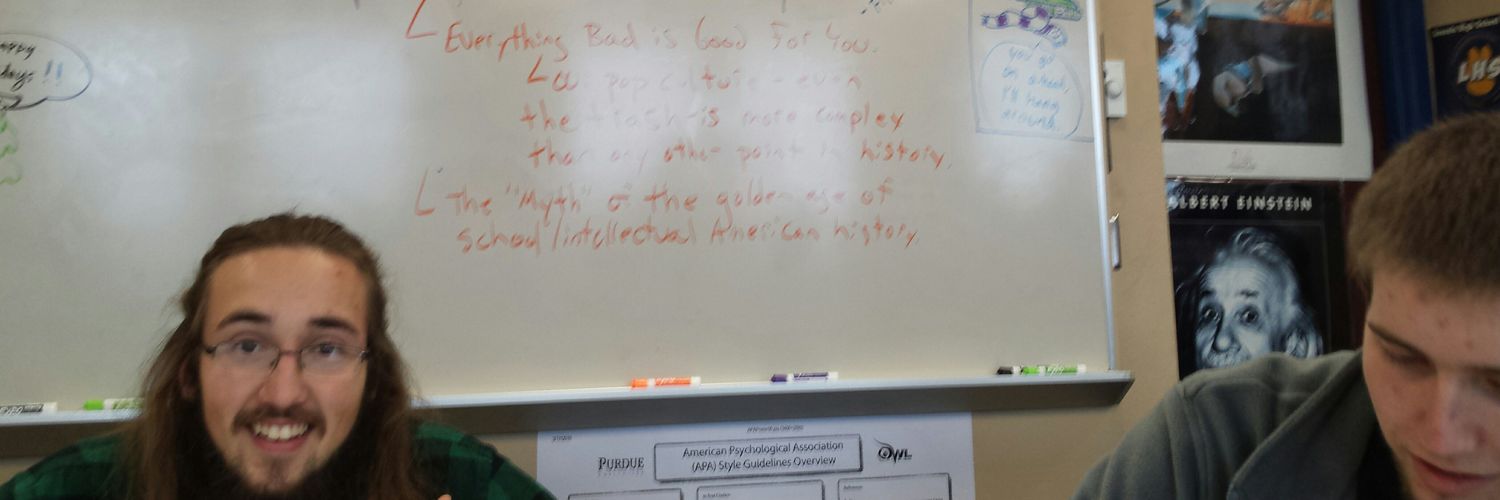 Everything Bad is Good For You.
pop culture - even
the trash - is more complex
than any other point in history.
the "Myth" of the golden age of
school/intellectual American history
you go
on ahead,
I'll hang
around.
LHS
ALBERT EINSTEIN
PURDUE
American Psychological Association
(APA) Style Guidelines Overview
OWL